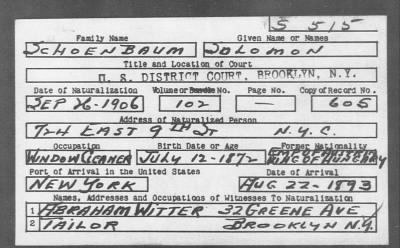 S 515
Family Name Given Name or Names
SCHOENBAUM SOLOMON
Title and Location of Court
U. S. DISTRICT COURT, BROOKLYN, N.Y.
Date of Naturalization Volume or Bundle No. Page No. Copy of Record No.
SEP 26-1906 102 — 605
Address of Naturalized Person
724 EAST 9TH ST N.Y.C.
Occupation Birth Date or Age Former Nationality
WINDOW CLEANER JULY 12-1872 KING OF HUNGARY
Port of Arrival in the United States Date of Arrival
NEW YORK AUG 22-1893
Names, Addresses and Occupations of Witnesses To Naturalization
1 ABRAHAM WITTER 32 GREENE AVE
2 TAILOR BROOKLYN N.Y.